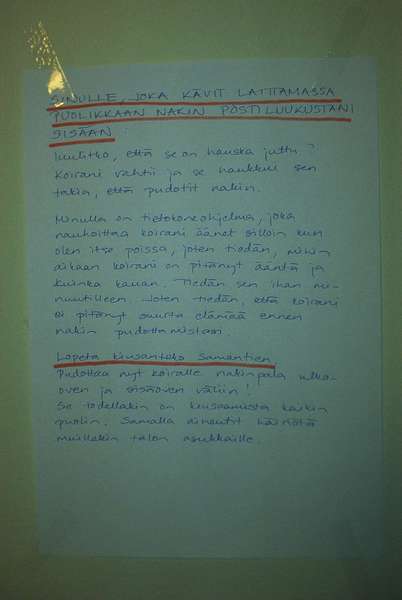 SINULLE, JOKA KÄVIT LAITTAMASSA
PUOLIKKAAN NAKIN POSTILUUKUSTANI
SISÄÄN
Luulitko, että se on hauska juttu?
Koirani vahtii ja se haukkui sen
takia, että pudotit nakin.
Minulla on tietokoneohjelma, joka
nauhoittaa koirani äänet silloin kun
olen itse poissa, joten tiedän, mihin
aikaan koirani on pitänyt ääntä ja
kuinka kauan. Tiedän sen ihan mi-
nuutilleen. Joten tiedän, että koirani
ei pitänyt suurta elämää ennen
nakin pudottamistaan.
Lopeta kiusanteko samantien
Pudottaa nyt koiralle nakinpala ulko-
oven ja sisäoven väliin!
Se todellakin on kiusaamista kaikin
puolin. Samalla aiheutit häiriötä
muillekin talon asukkaille.